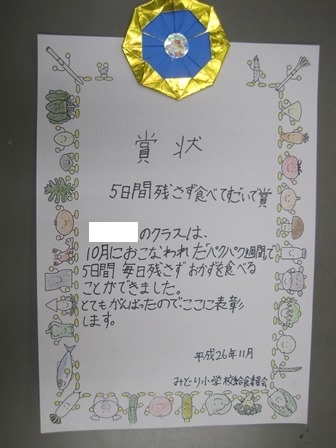 賞状
5日間残さず食べてすごいで賞
のクラスは、
10月におこなわれたパクパク週間で
5日間 毎日残さずおかずを食べる
ことができました。
とてもがんばったのでここに表彰
します。
平成26年11月
みどり小学校給食委員会